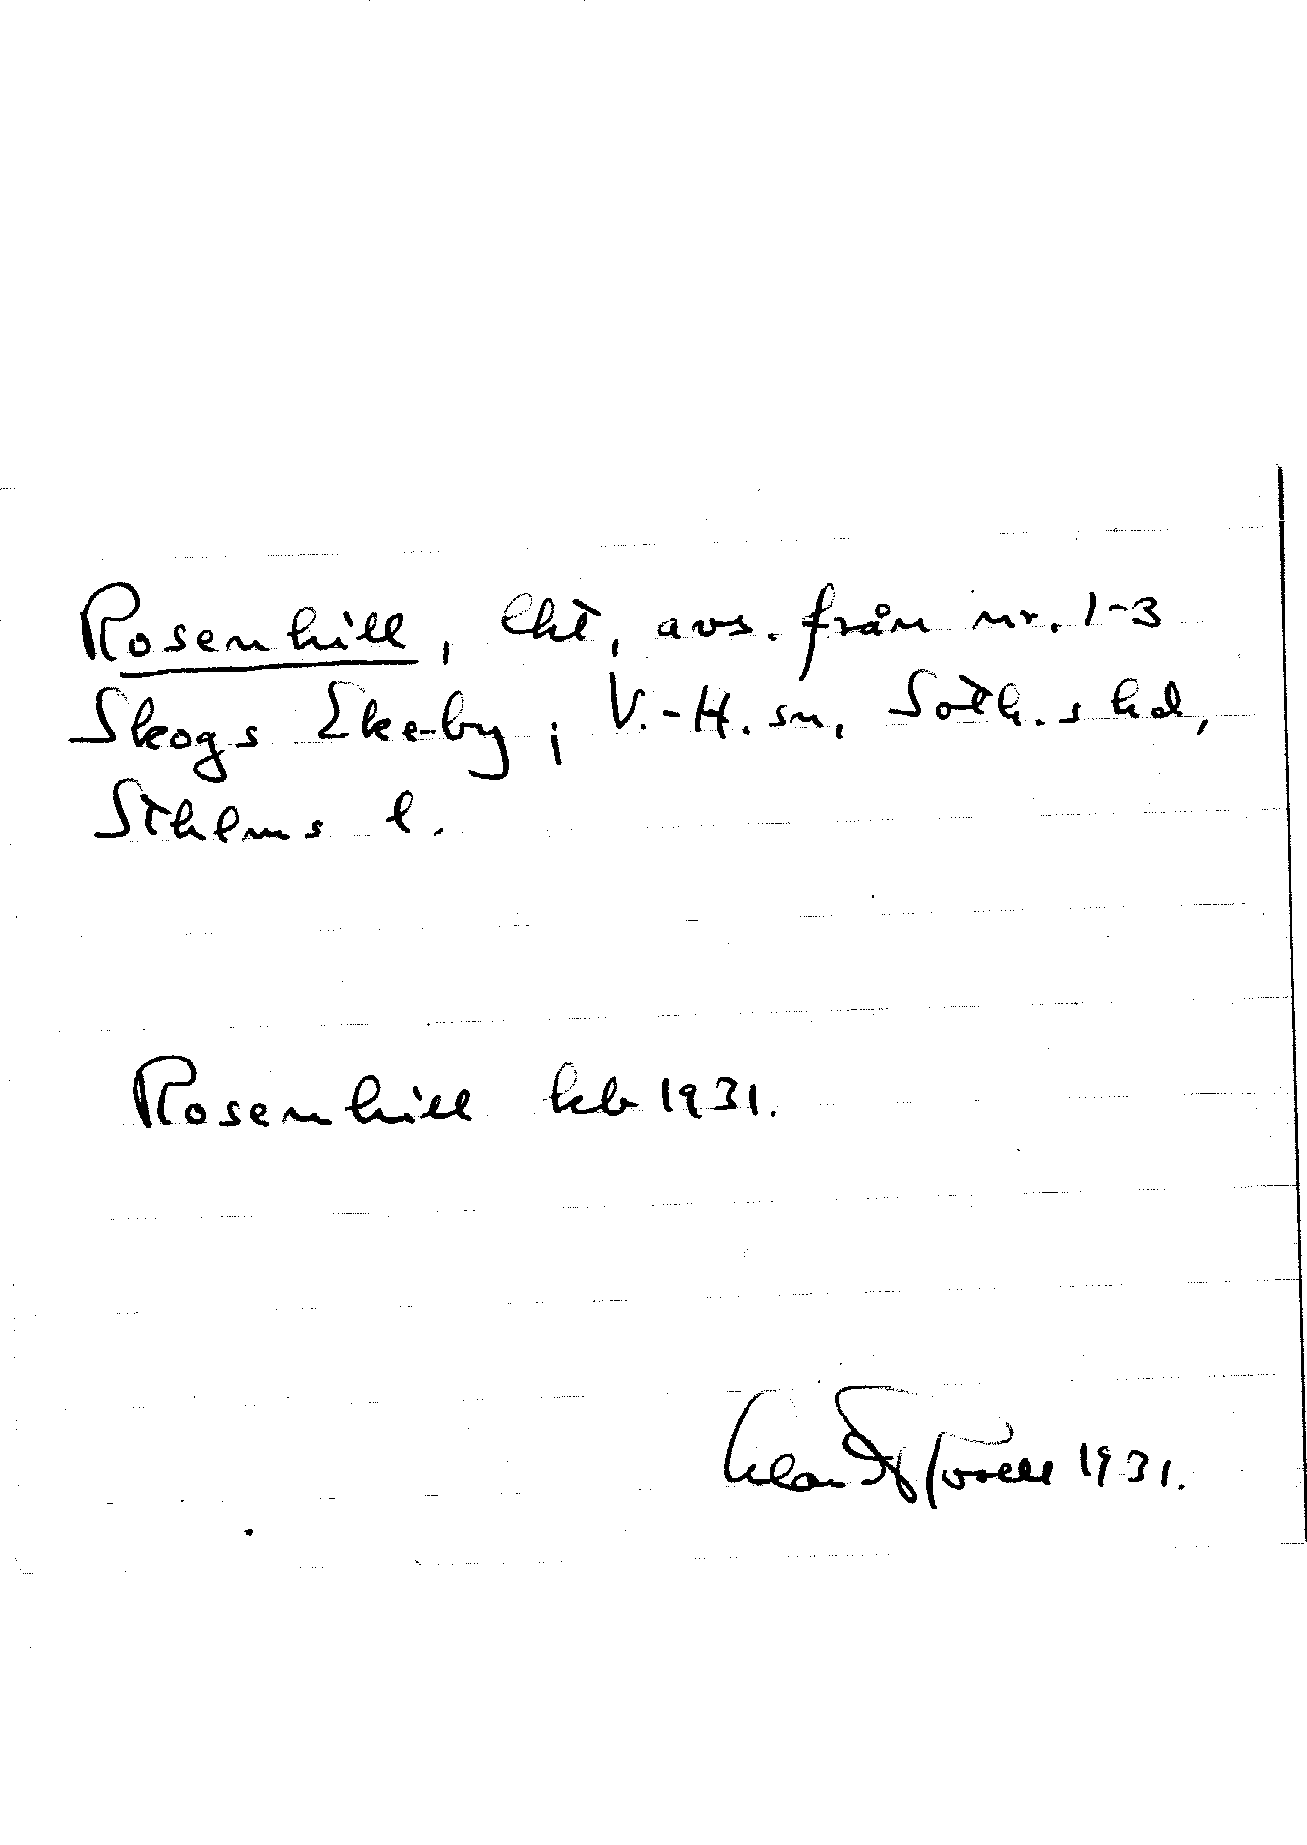 Rosenhill, lht, avs. från nr. 1-3
Skogs Ekeby i V.-H. sn, Soth.s hd,
Sthlms l.
Rosenhill kb 1931.
1931.